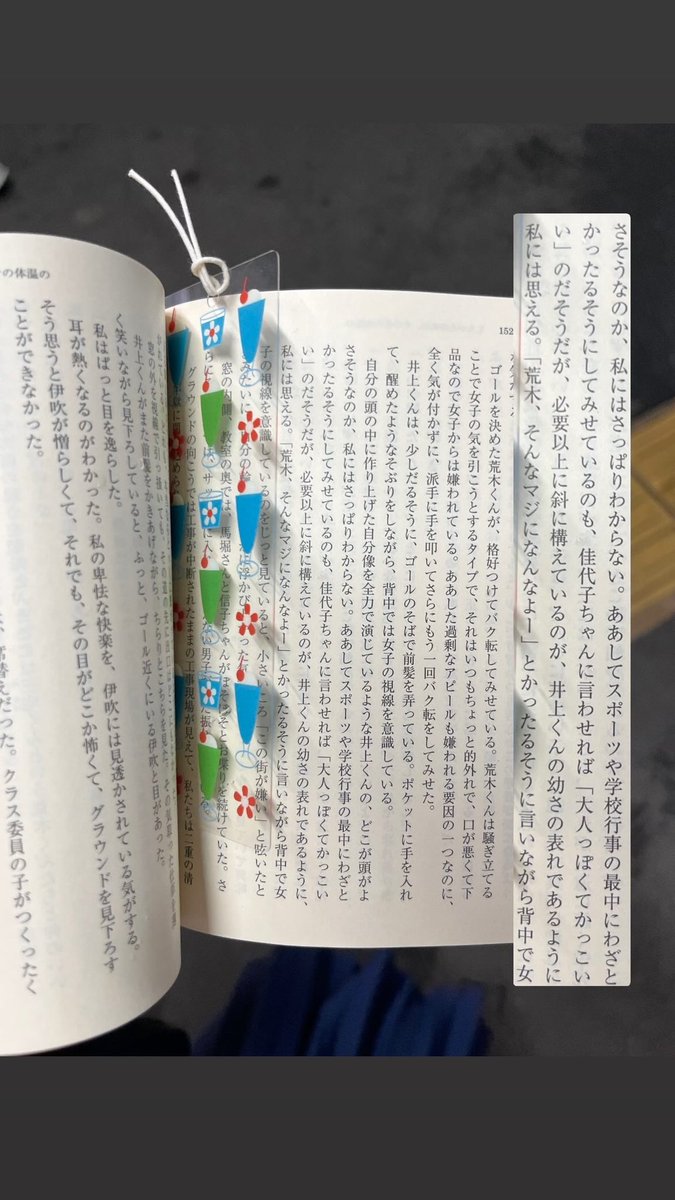 さそうなのか、私にはさっぱりわからない。ああしてスポーツや学校行事の最中にわざと
かったるそうにしてみせているのも、佳代子ちゃんに言わせれば「大人っぽくてかっこい
い」のだそうだが、必要以上に斜に構えているのが、井上くんの幼さの表れであるように
私には思える。「荒木、そんなマジになんなよー」とかったるそうに言いながら背中で女
152
ゴールを決めた荒木くんが、格好つけてバク転してみせている。荒木くんは騒ぎ立てる
ことで女子の気を引こうとするタイプで、それはいつもちょっと的外れで、口が悪くて下
品なので女子からは嫌われている。ああした過剰なアピールも嫌われる要因の一つなのに、
全く気が付かずに、派手に手を叩いてさらにもう一回バク転をしてみせた。
井上くんは、少しだるそうに、ゴールのそばで前髪を弄っている。ポケットに手を入れ
て、醒めたようなそぶりをしながら、背中では女子の視線を意識している。
自分の頭の中に作り上げた自分像を全力で演じているような井上くんの、どこが頭がよ
さそうなのか、私にはさっぱりわからない。ああしてスポーツや学校行事の最中にわざと
かったるそうにしてみせているのも、佳代子ちゃんに言わせれば「大人っぽくてかっこい
い」のだそうだが、必要以上に斜に構えているのが、井上くんの幼さの表れであるように、
私には思える。「荒木、そんなマジになんなよー」とかったるそうに言いながら背中で女
子の視線を意識しているのをじっと見ていると、小さい「この街が嫌い」と呟いたと
窓の内側、教室の奥では、馬堀さんと信子ちゃんがぼそぼそとお喋りを続けていた。さ
グラウンドの向こうでは工事が中断されたままの工事現場が見えて、私たちは二重の
の体温の
窓の外を
井上くんがまた前髪をかきあげながら、ちらりとこちらを見た。
く笑いながら見下ろしていると、ふっと、ゴール近くにいる伊吹と目があった。
私はぱっと目を逸らした。
耳が熱くなるのがわかった。私の卑怯な快楽を、伊吹には見透かされている気がする。
そう思うと伊吹が憎らしくて、それでも、その目がどこか怖くて、グラウンドを見下ろす
ことができなかった。
席替えだった。クラス委員の子がつくったく